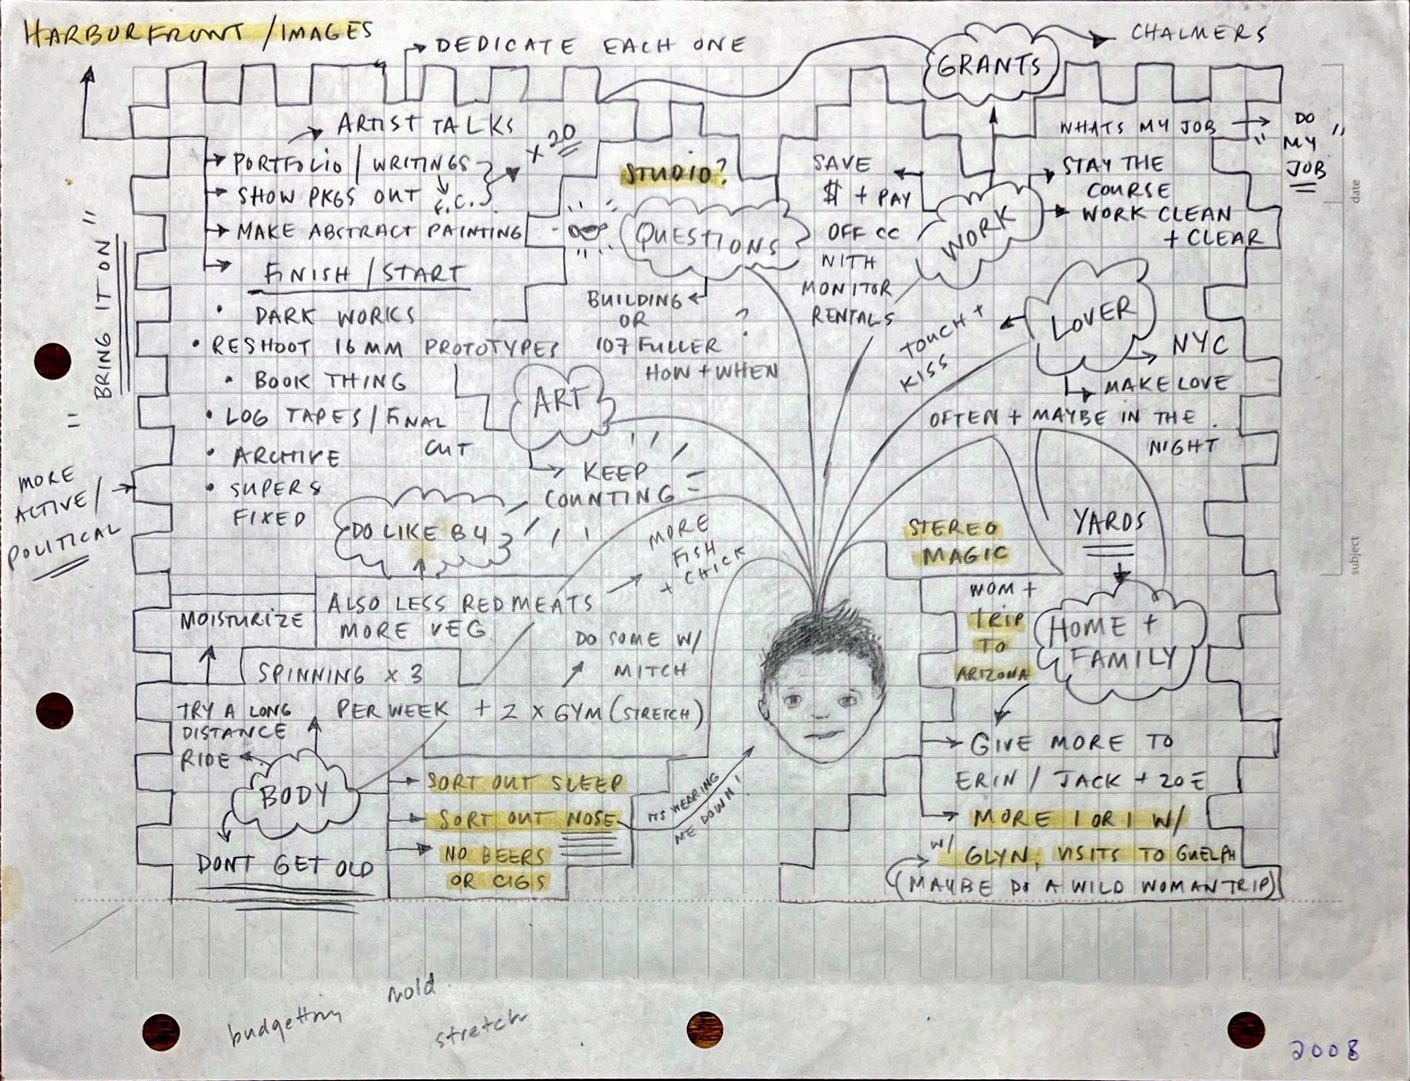 HARBURFRONT / IMAGES
DEDICATE EACH ONE
GRANTS
CHALMERS
ARTIST TALKS
PORTFOLIO / WRITINGS
x 20
SHOW PKGS OUT
F.C.
MAKE ABSTRACT PAINTING
FINISH / START
DARK WORKS
RESHOOT 16MM PROTOTYPES
BOOK THING
LOG TAPES / FINAL
CUT
ARCHIVE
SUPERS
FIXED
"BRING IT ON"
=
MORE
ACTIVE /
POLITICAL
STUDIO?
QUESTIONS
BUILDING
OR ?
107 FULLER
HOW + WHEN
ART
KEEP
COUNTING
SAVE
$ + PAY
OFF CC
WITH
MONITOR
RENTALS
WORK
WHATS MY JOB
"DO
MY
JOB"
STAY THE
COURSE
WORK CLEAN
+ CLEAR
LOVER
TOUCH +
KISS
NYC
MAKE LOVE
OFTEN + MAYBE IN THE
NIGHT
DO LIKE B4
MORE
FISH
+ CHICK
MOISTURIZE
ALSO LESS RED MEATS
MORE VEG
DO SOME W/
MITCH
SPINNING x 3
PER WEEK + 2 x GYM (STRETCH)
TRY A LONG
DISTANCE
RIDE
BODY
DONT GET OLD
SORT OUT SLEEP
SORT OUT NOSE
NO BEERS
OR CIGS
ITS WEARING
ME DOWN!
STEREO
MAGIC
YARDS
WOM +
TRIP
TO
ARIZONA
HOME +
FAMILY
GIVE MORE TO
ERIN / JACK + ZOE
MORE 1 OR 1 W/
W/ GLYN, VISITS TO GUELPH
(MAYBE DO A WILD WOMAN TRIP)
date
subject
budgetting
mold
stretch
2008